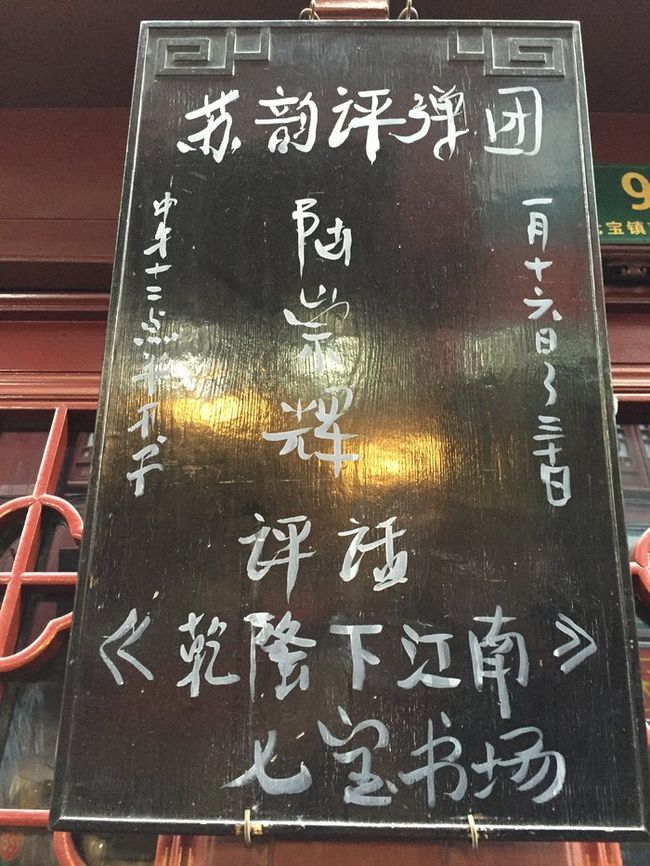 苏韵评弹团
一月十六日~三十日
陆崇辉
中午十二点半开
评话
《乾隆下江南》
七宝书场
9
宝镇